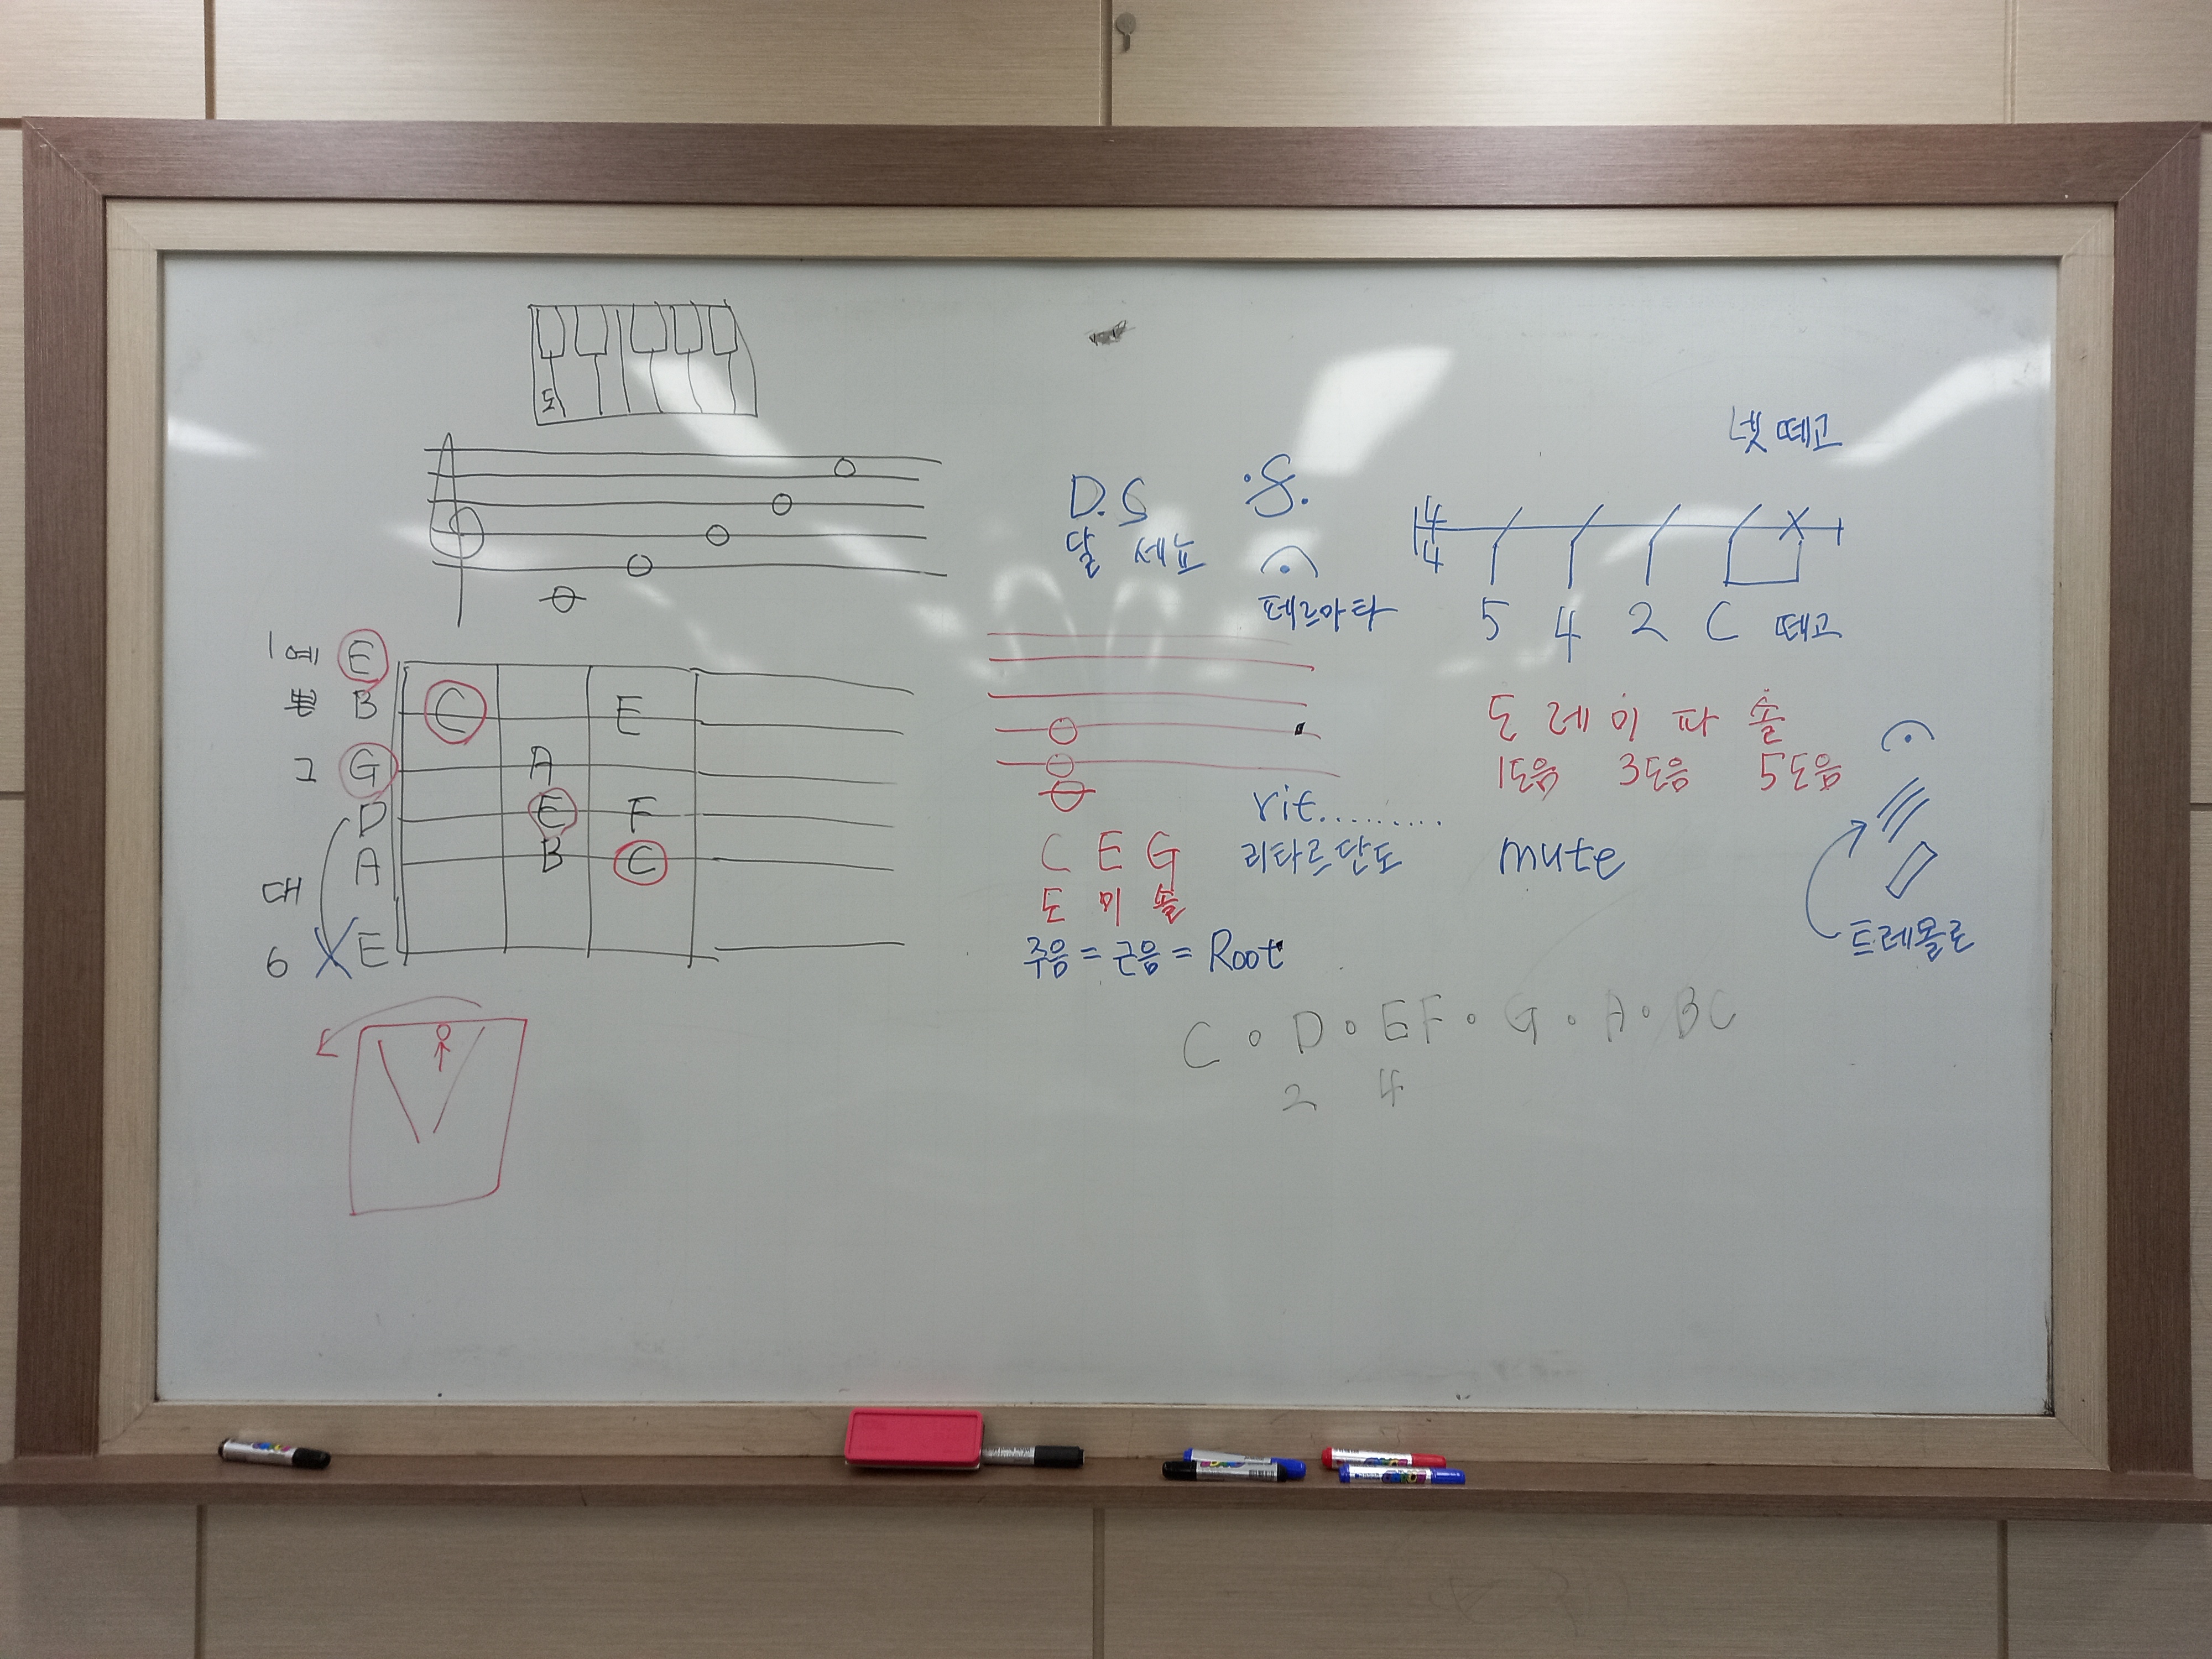 도
D.S
달 세뇨
페르마타
넷 떼고
4
4
5 4 2 C 떼고
1 예 E
B C E
그 G A
D E F
A B C
대
6 X E
도 레 미 파 솔
1도음 3도음 5도음
rit.........
리타르단도
mute
트레몰로
C E G
도 미 솔
주음 = 근음 = Root
C ∘ D ∘ E F ∘ G ∘ A ∘ B C
2 4